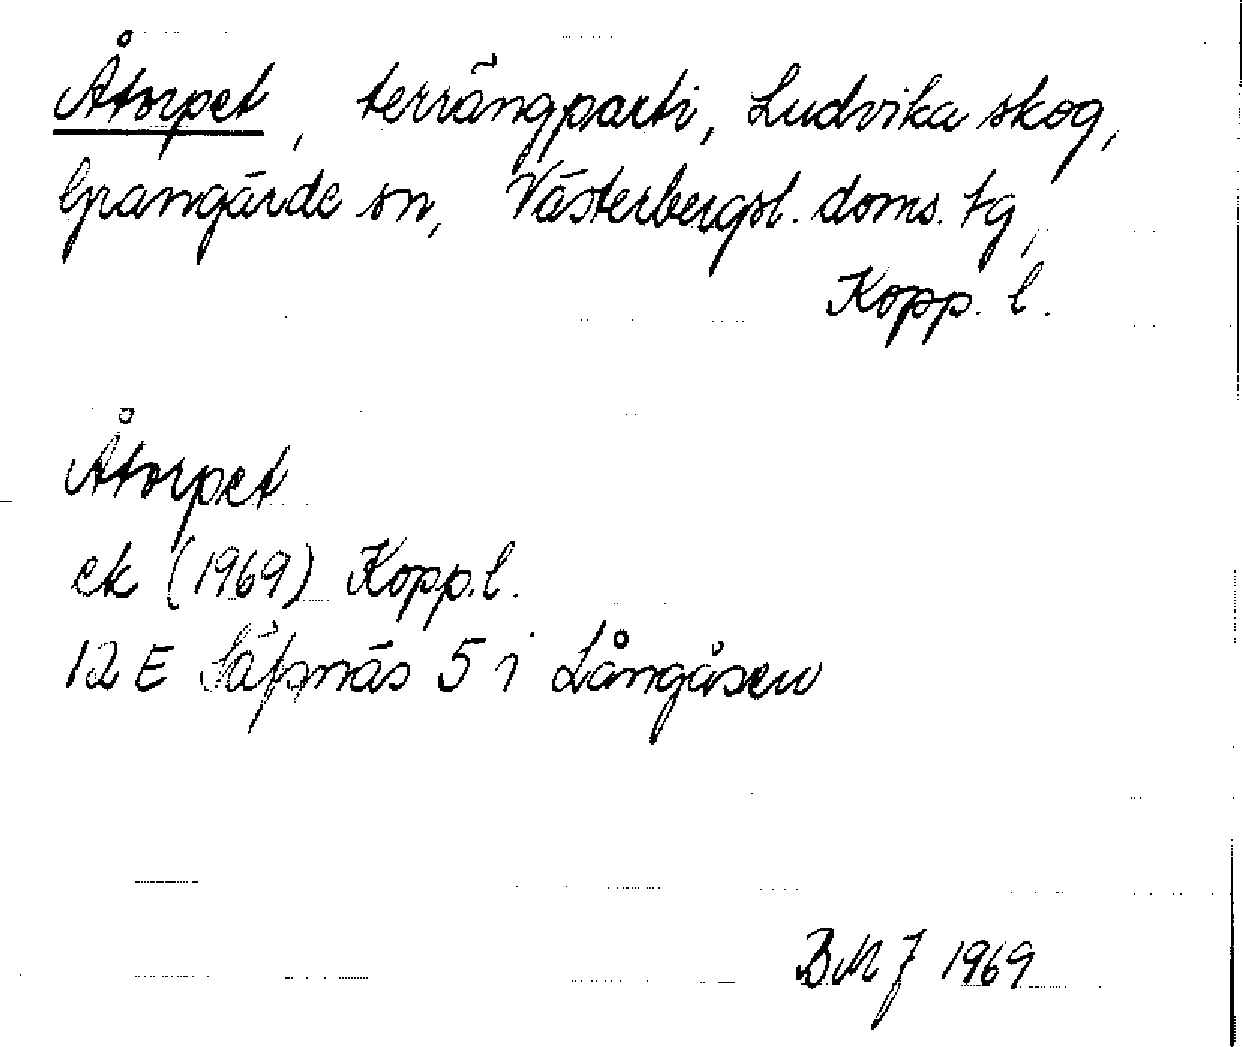 Åtorpet, terrängparti, Ludvika skog,
Grangärde sn, Västerbergsl. doms. tg,
Kopp. l.
Åtorpet
ek (1969) Kopp. l.
12 E Säfsnäs 5 i Långåsen
BMJ 1969